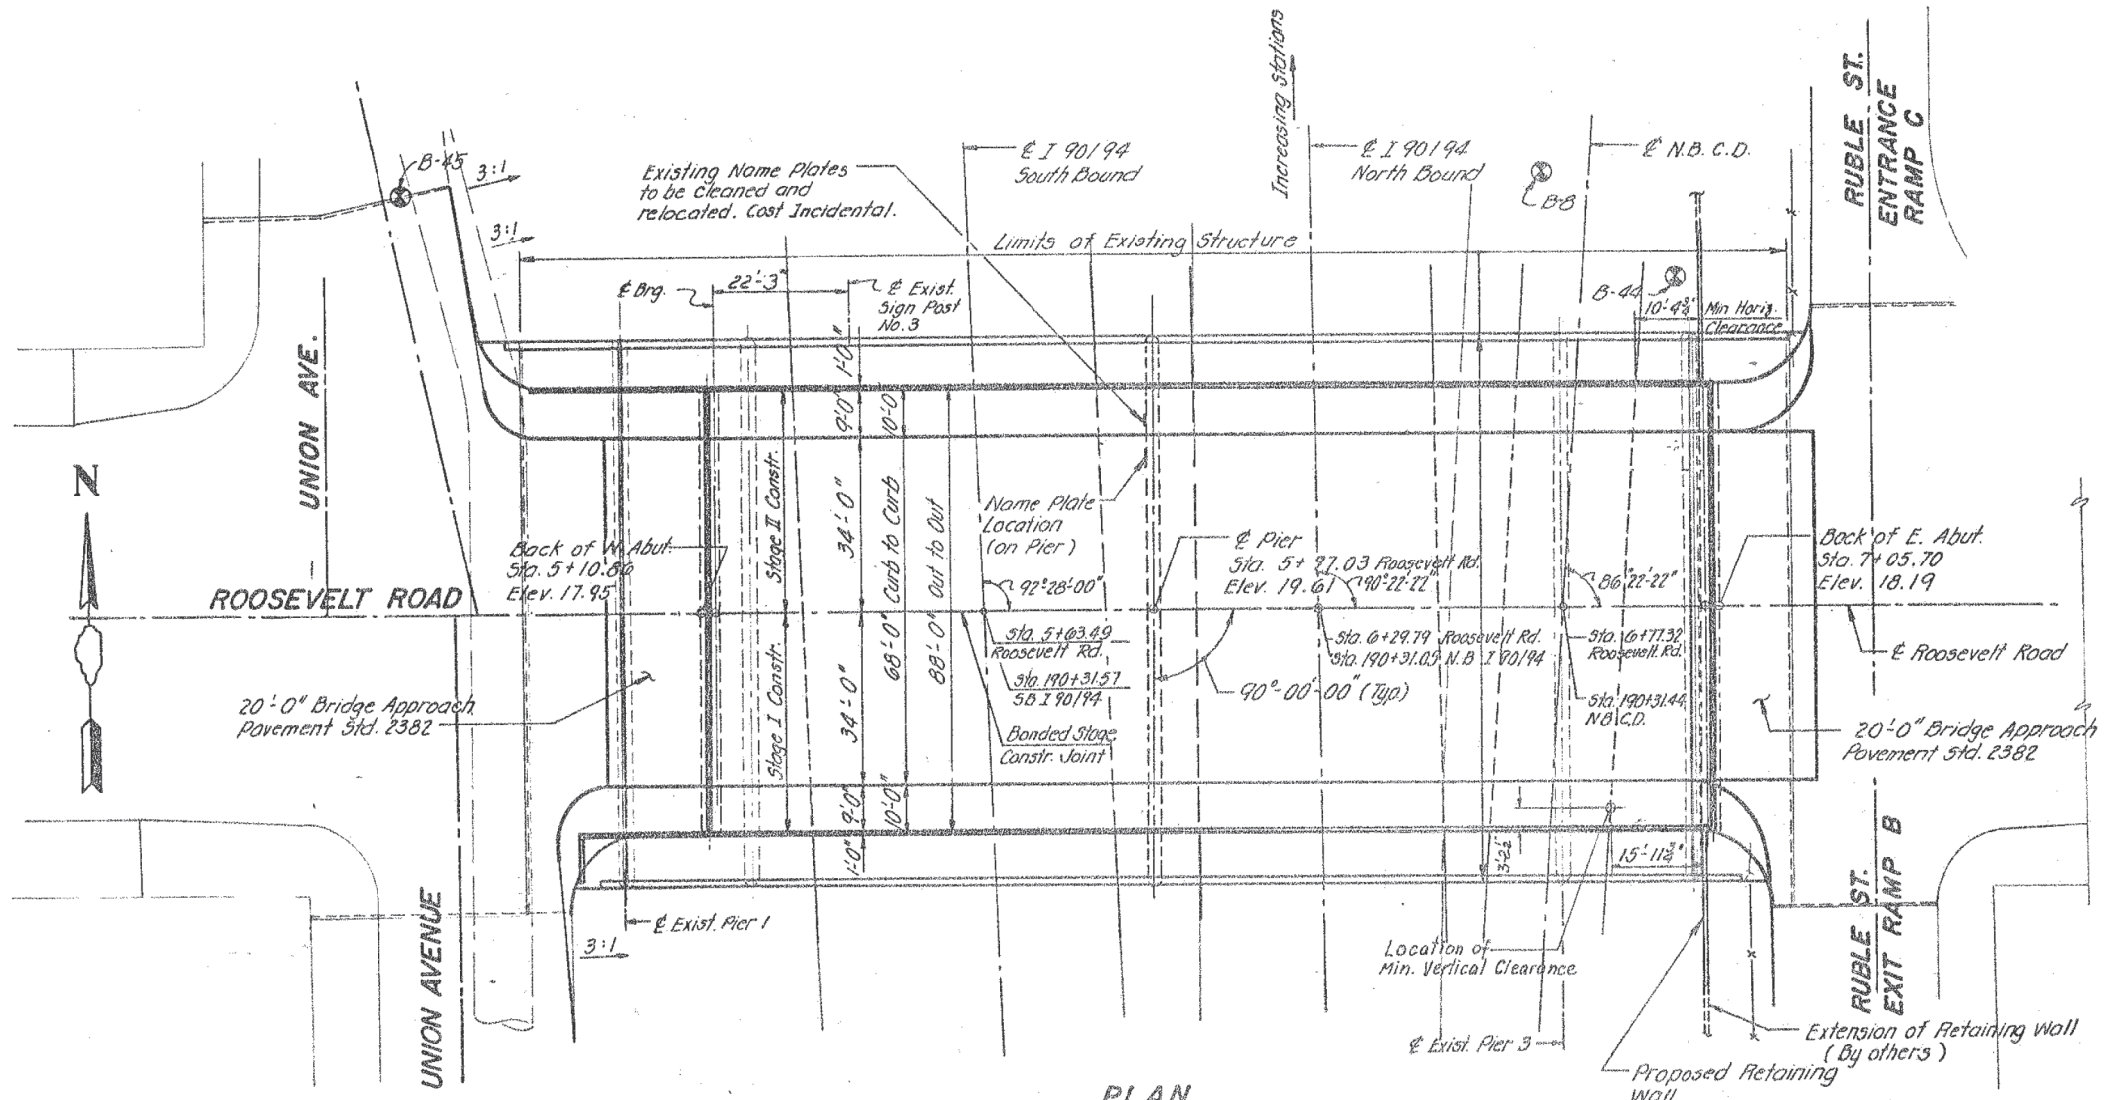 Increasing Stations
RUBLE ST.
ENTRANCE
RAMP C
B-45
3:1
3:1
Existing Name Plates
to be cleaned and
relocated. Cost Incidental.
℄ I 90/94
South Bound
℄ I 90/94
North Bound
℄ N.B. C.D.
B-8
Limits of Existing Structure
℄ Brg.
22'-3"
℄ Exist.
Sign Post
No. 3
B-44
10'-4¾"
Min Horiz.
Clearance
UNION AVE.
N
1'-0"
9'-0"
10'-0"
Stage II Constr.
34'-0"
68'-0" Curb to Curb
88'-0" Out to Out
Name Plate
Location
(on Pier)
Back of W. Abut.
Sta. 5+10.86
Elev. 17.95
℄ Pier
Sta. 5+97.03 Roosevelt Rd.
Elev. 19.61
92°-28'-00"
90°-22'-22"
86°22'-22"
Back of E. Abut.
Sta. 7+05.70
Elev. 18.19
ROOSEVELT ROAD
Sta. 5+63.49
Roosevelt Rd.
Sta. 190+31.57
S.B. I 90/94
Sta. 6+29.79 Roosevelt Rd.
Sta. 190+31.05 N.B. I 90/94
Sta. 6+77.32
Roosevelt Rd.
Sta. 190+31.44
N.B.C.D.
℄ Roosevelt Road
90°-00'-00" (Typ.)
20'-0" Bridge Approach
Pavement Std. 2382
Stage I Constr.
34'-0"
Bonded Stage
Constr. Joint
20'-0" Bridge Approach
Pavement Std. 2382
1'-0"
9'-0"
10'-0"
3'-2½"
15'-11¾"
℄ Exist. Pier 1
3:1
UNION AVENUE
Location of
Min. Vertical Clearance
RUBLE ST.
EXIT RAMP B
℄ Exist. Pier 3
Extension of Retaining Wall
(By others)
Proposed Retaining
Wall
PLAN